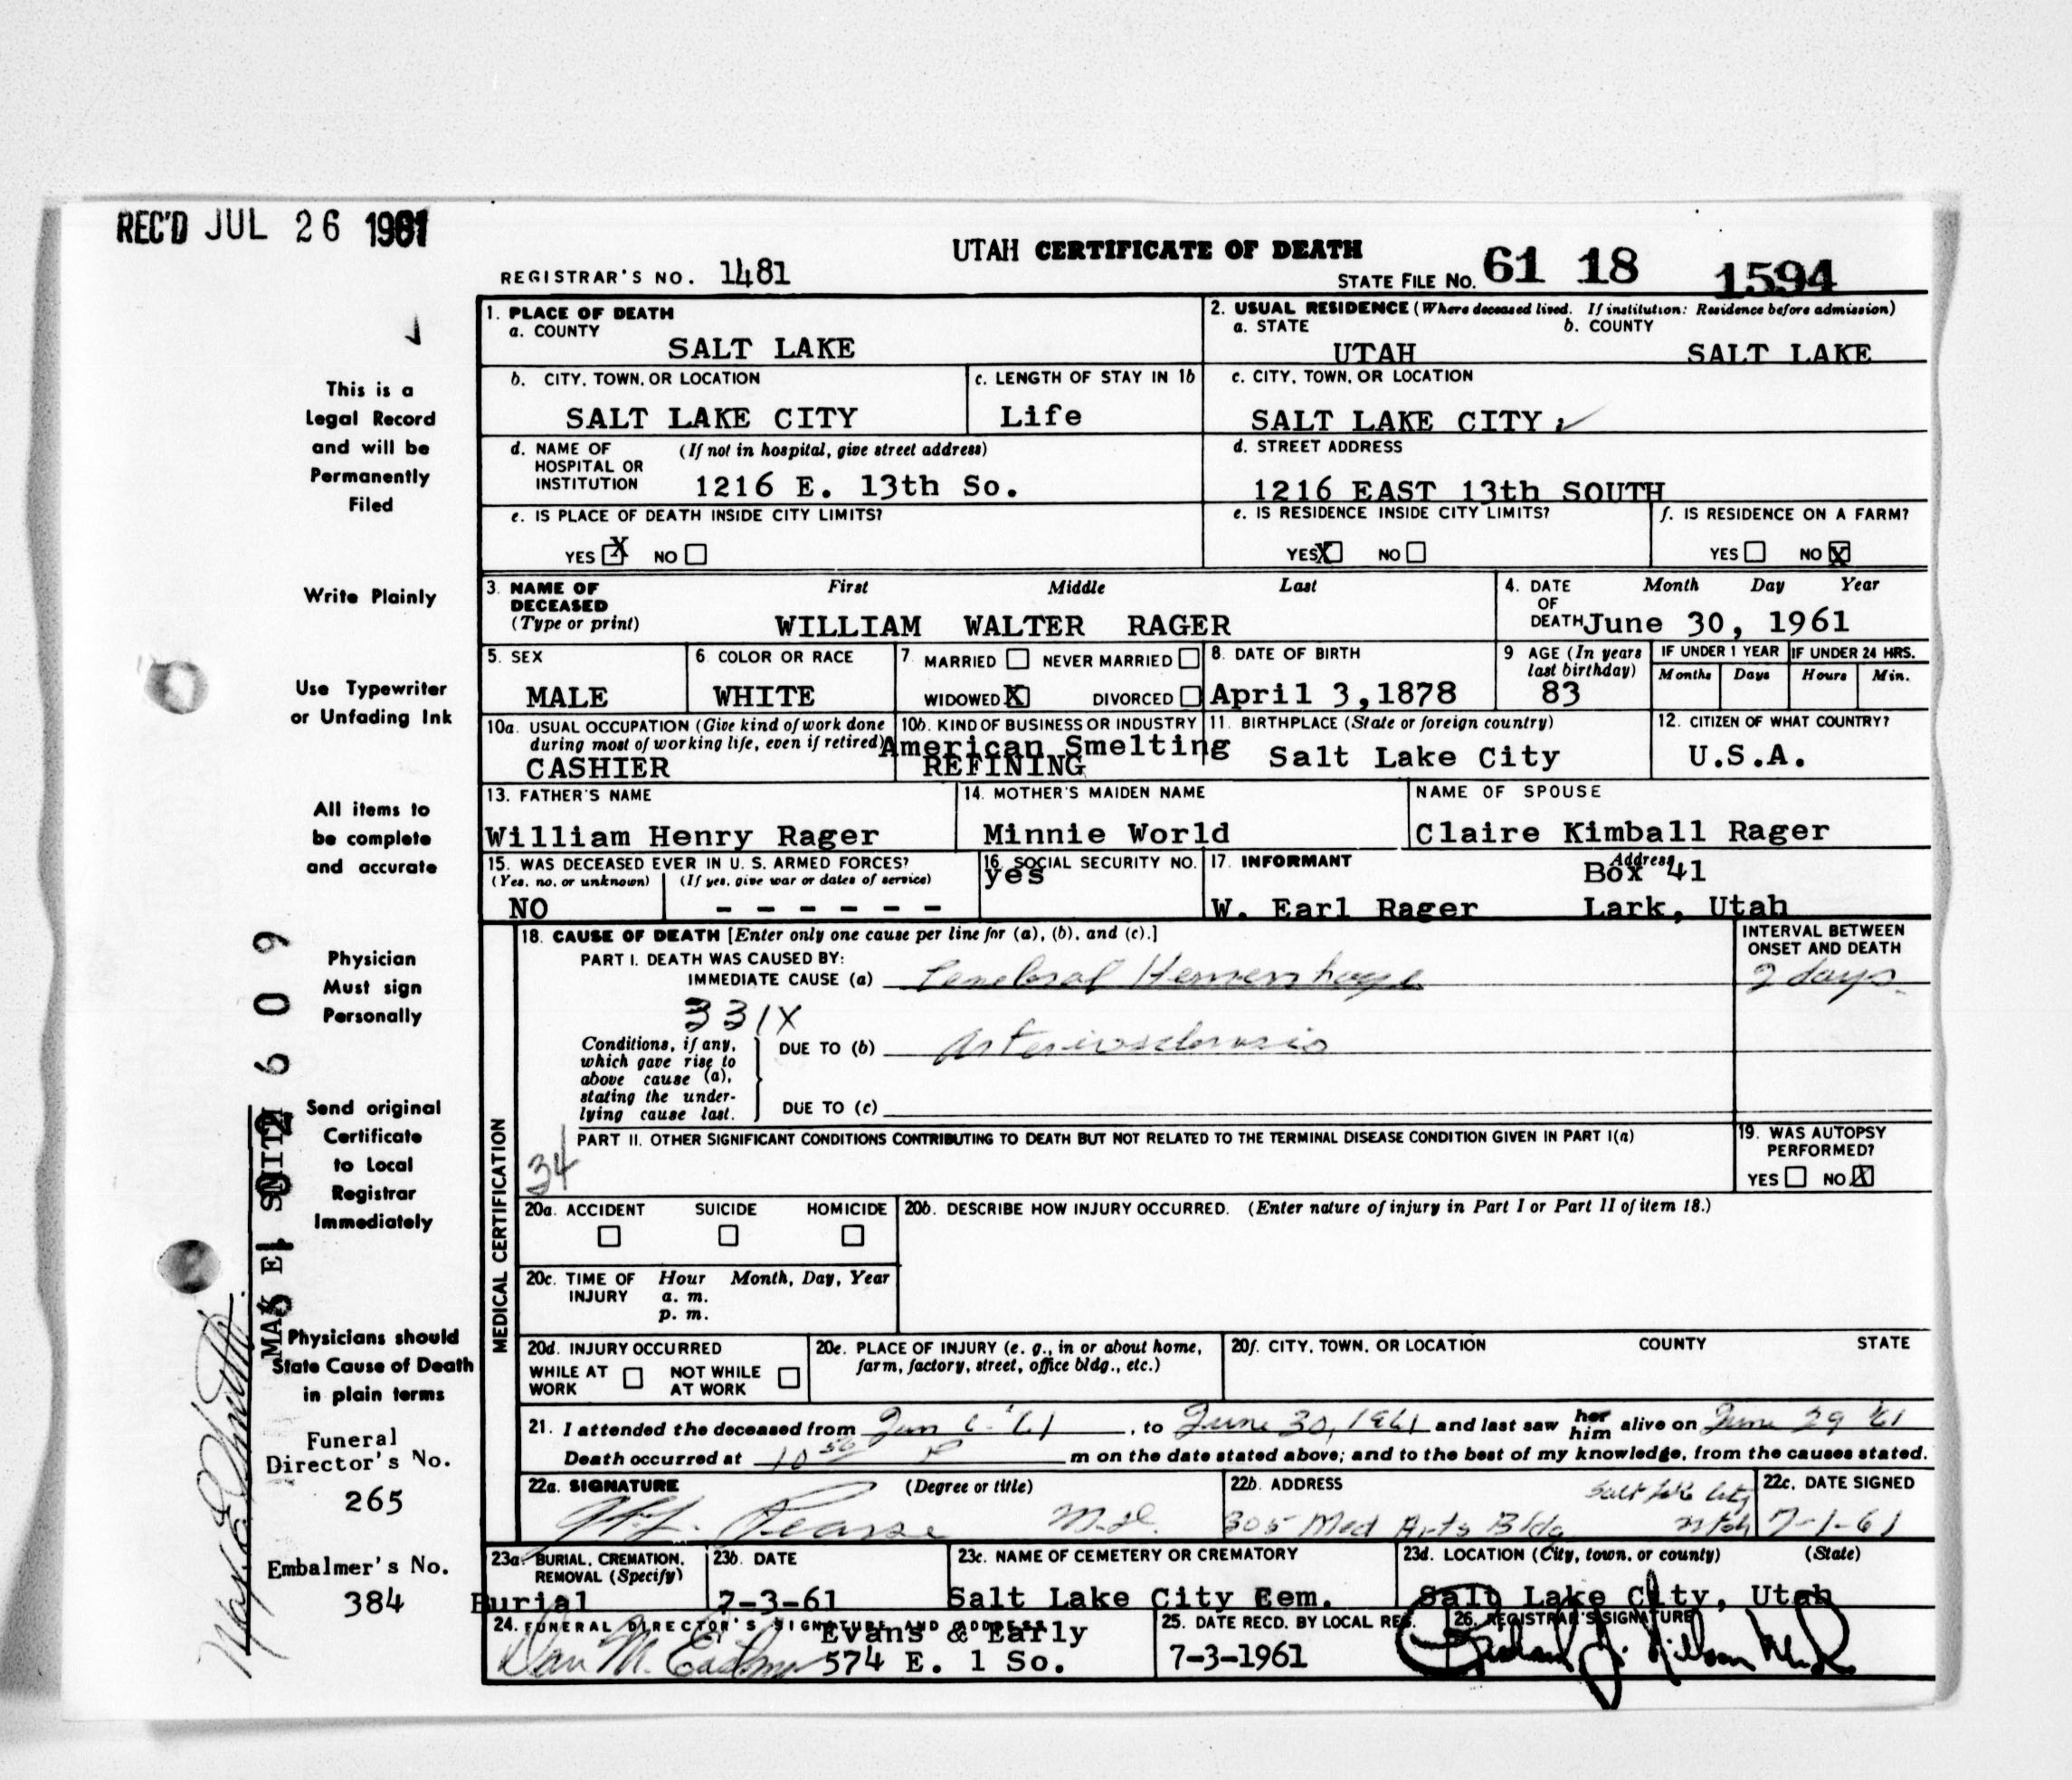 REC'D JUL 26 1961
UTAH CERTIFICATE OF DEATH
REGISTRAR'S NO. 1481
STATE FILE NO. 61 18 1594
This is a
Legal Record
and will be
Permanently
Filed
Write Plainly
Use Typewriter
or Unfading Ink
All items to
be complete
and accurate
Physician
Must sign
Personally
Send original
Certificate
to Local
Registrar
Immediately
Physicians should
State Cause of Death
in plain terms
Funeral
Director's No.
265
Embalmer's No.
384
1. PLACE OF DEATH
a. COUNTY
SALT LAKE
2. USUAL RESIDENCE (Where deceased lived. If institution: Residence before admission)
a. STATE b. COUNTY
UTAH SALT LAKE
b. CITY, TOWN, OR LOCATION
SALT LAKE CITY
c. LENGTH OF STAY IN 1b
Life
c. CITY, TOWN, OR LOCATION
SALT LAKE CITY
d. NAME OF (If not in hospital, give street address)
HOSPITAL OR
INSTITUTION 1216 E. 13th So.
d. STREET ADDRESS
1216 EAST 13th SOUTH
e. IS PLACE OF DEATH INSIDE CITY LIMITS?
YES X NO
e. IS RESIDENCE INSIDE CITY LIMITS?
YES X NO
f. IS RESIDENCE ON A FARM?
YES NO X
3. NAME OF First Middle Last
DECEASED
(Type or print) WILLIAM WALTER RAGER
4. DATE Month Day Year
OF
DEATH June 30, 1961
5. SEX
MALE
6. COLOR OR RACE
WHITE
7. MARRIED NEVER MARRIED
WIDOWED X DIVORCED
8. DATE OF BIRTH
April 3,1878
9 AGE (In years
last birthday)
83
IF UNDER 1 YEAR IF UNDER 24 HRS.
Months Days Hours Min.
10a. USUAL OCCUPATION (Give kind of work done
during most of working life, even if retired)
CASHIER
10b. KIND OF BUSINESS OR INDUSTRY
American Smelting
REFINING
11. BIRTHPLACE (State or foreign country)
Salt Lake City
12. CITIZEN OF WHAT COUNTRY?
U.S.A.
13. FATHER'S NAME
William Henry Rager
14. MOTHER'S MAIDEN NAME
Minnie World
NAME OF SPOUSE
Claire Kimball Rager
15. WAS DECEASED EVER IN U. S. ARMED FORCES?
(Yes, no, or unknown) (If yes, give war or dates of service)
NO - - - - - -
16. SOCIAL SECURITY NO.
yes
17. INFORMANT Address
Box 41
W. Earl Rager Lark, Utah
MEDICAL CERTIFICATION
18. CAUSE OF DEATH [Enter only one cause per line for (a), (b), and (c).]
INTERVAL BETWEEN
ONSET AND DEATH
PART I. DEATH WAS CAUSED BY:
IMMEDIATE CAUSE (a) Cerebral Hemorrhage 2 days
331X
Conditions, if any,
which gave rise to
above cause (a),
stating the under-
lying cause last.
DUE TO (b) Arteriosclerosis
DUE TO (c)
PART II. OTHER SIGNIFICANT CONDITIONS CONTRIBUTING TO DEATH BUT NOT RELATED TO THE TERMINAL DISEASE CONDITION GIVEN IN PART I(a)
34
19. WAS AUTOPSY
PERFORMED?
YES NO X
20a. ACCIDENT SUICIDE HOMICIDE
20b. DESCRIBE HOW INJURY OCCURRED. (Enter nature of injury in Part I or Part II of item 18.)
20c. TIME OF Hour Month, Day, Year
INJURY a. m.
p. m.
20d. INJURY OCCURRED
WHILE AT NOT WHILE
WORK AT WORK
20e. PLACE OF INJURY (e. g., in or about home,
farm, factory, street, office bldg., etc.)
20f. CITY, TOWN, OR LOCATION COUNTY STATE
21. I attended the deceased from Jan 6 - '61, to June 30, 1961 and last saw her him alive on June 29 '61
Death occurred at 10 50 P m on the date stated above; and to the best of my knowledge, from the causes stated.
22a. SIGNATURE (Degree or title)
Pearse M.D.
22b. ADDRESS
305 Med Arts Bldg Salt Lake City Utah
22c. DATE SIGNED
7-1-61
23a. BURIAL, CREMATION,
REMOVAL (Specify)
Burial
23b. DATE
7-3-61
23c. NAME OF CEMETERY OR CREMATORY
Salt Lake City Cem.
23d. LOCATION (City, town, or county) (State)
Salt Lake City, Utah
24. FUNERAL DIRECTOR'S SIGNATURE AND ADDRESS
Evans & Early
574 E. 1 So.
25. DATE RECD. BY LOCAL REG.
7-3-1961
26. REGISTRAR'S SIGNATURE